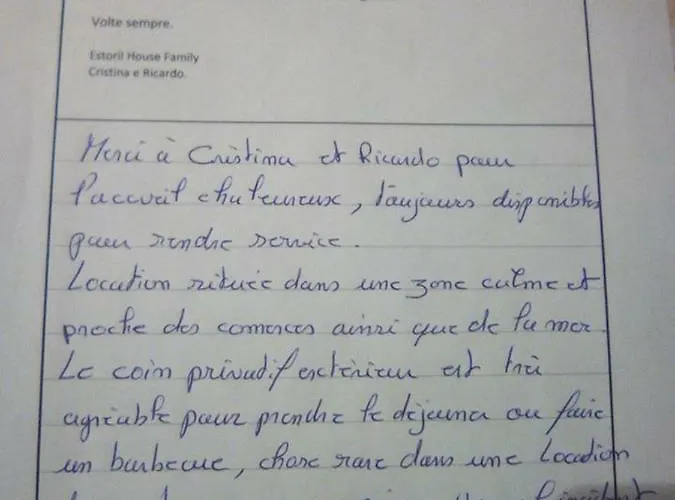 Volte sempre.
Estoril House Family
Cristina e Ricardo.
Merci à Cristina et Ricardo pour
l'accueil chaleureux, toujours disponibles
pour rendre service.
Location située dans une zone calme et
proche des comerces ainsi que de la mer.
Le coin privatif extérieur est très
agréable pour prendre le déjeuner ou faire
un barbecue, chose rare dans une location